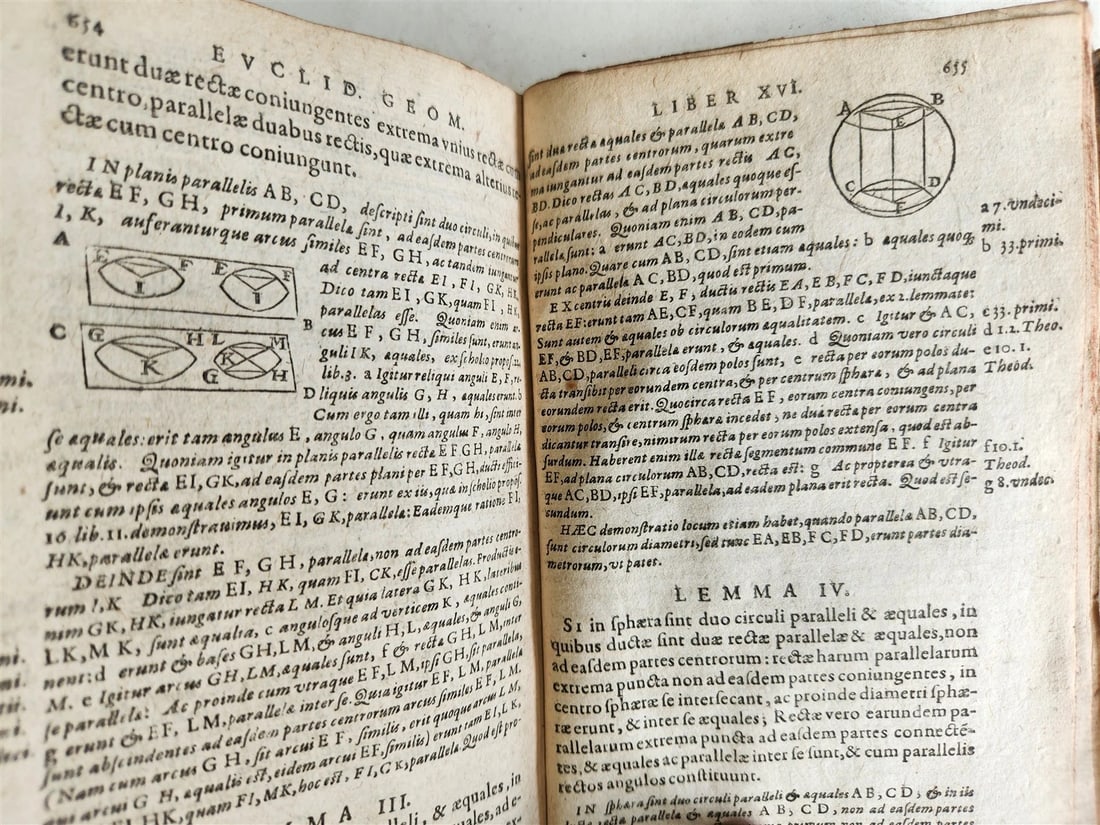 654
EVCLID. GEOM.
erunt duæ rectæ coniungentes extrema vnius rectæ cum
centro, parallelæ duabus rectis, quæ extrema alterius re-
ctæ cum centro coniungunt.
IN planis parallelis AB, CD, descripti sint duo circuli, in quibus
rectæ EF, GH, primum parallelæ sint, ad easdem partes centrorum
I, K, auferanturque arcus similes EF, GH, ac tandem iungantur
ad centra rectæ EI, FI, GK, HK,
Dico tam EI, GK, quam FI, HK,
parallelas esse. Quoniam enim ar-
cus EF, GH, similes sunt, erunt an-
guli I K, æquales, ex scholio propos. 22.
lib. 3. a Igitur reliqui anguli E, F, re-
liquis angulis G, H, æquales erunt. b
Cum ergo tam illi, quam hi, sint inter
A
E F E F
I I
B
C
G H L M
K K
G H
D
se æquales: erit tam angulus E, angulo G, quam angulus F, angulo H,
æqualis. Quoniam igitur in planis parallelis rectæ EF, GH, parallelæ
sunt, & rectæ EI, GK, ad easdem partes plani per EF, GH, ductæ effici-
unt cum ipsis æquales angulos E, G: erunt ex iis, quæ in scholio propos.
16. lib. 11. demonstrauimus, EI, GK, parallelæ: Eademque ratione FI,
HK, parallelæ erunt.
DEINDE sint EF, GH, parallelæ, non ad easdem partes centro-
rum I, K Dico tam EI, HK, quam FI, CK, esse parallelas. Productis e-
nim GK, HK, iungatur recta LM. Et quia latera GK, HK, lateribus
LK, MK, sunt æqualia, c angulosque ad verticem K, æquales conti-
nent: d erunt & bases GH, LM, & anguli H, L, æquales, & anguli G,
M. e Igitur arcus GH, LM, æquales sunt, f & rectæ GH, LM, inter
se parallelæ: Ac proinde cum vtraque EF, LM, ipsi GH, sit parallela,
g erunt & EF, LM, parallelæ inter se. Quia igitur EF, LM, parallelæ
sunt abscindentes ad easdem partes centrorum arcus similes EF, LM.
(Nam cum arcus GH, sit arcui EF, similis, erit quoque arcus LM,
qui arcui GH, æqualis est, eidem arcui EF, similis) erunt tam EI, LK,
HK, quam FI, MK, hoc est, FI, GK, parallelæ. Quod est pro-
MA III.
& æquales, in
mi.
ni.
655
LIBER XVI.
sint duæ rectæ æquales & parallelæ AB, CD,
ad easdem partes centrorum, quarum extre
ma iungantur ad easdem partes rectis AC,
BD. Dico rectas AC, BD, æquales quoque es-
se, ac parallelas, & ad plana circulorum per-
pendiculares. Quoniam enim AB, CD, pa-
rallelæ sunt: a erunt AC, BD, in eodem cum
ipsis plano. Quare cum AB, CD, sint etiam æquales: b æquales quoq;
erunt ac parallelæ AC, BD, quod est primum.
A B
E
C D
F
a 7. vndeci-
mi.
b 33. primi.
EX centris deinde E, F, ductis rectis EA, EB, FC, FD, iunctaque
recta EF: erunt tam AE, CF, quam BE, DF, parallelæ, ex 2. lemmate:
Sunt autem & æquales ob circulorum æqualitatem. c Igitur & AC,
EF, & BD, EF, parallelæ erunt, & æquales. d Quoniam vero circuli
AB, CD, paralleli circa eosdem polos sunt, e recta per eorum polos du-
cta transibit per eorundem centra, & per centrum sphæræ, & ad plana
eorundem recta erit. Quocirca recta EF, eorum centra coniungens, per
eorum polos, & centrum sphæræ incedet, ne duæ rectæ per eorum centra
dicantur transire, nimirum recta per eorum polos extensa, quod est ab-
surdum. Haberent enim illæ rectæ segmentum commune EF. f Igitur
EF, ad plana circulorum AB, CD, recta est: g Ac propterea & vtra-
que AC, BD, ipsi EF, parallela, ad eadem plana erit recta. Quod est se-
cundum.
c 33. primi.
d 1. 2. Theo.
e 10. 1.
Theod.
f 10. 1.
Theod.
g 8. vndec.
HÆC demonstratio locum etiam habet, quando parallelæ AB, CD,
sunt circulorum diametri, sed tunc EA, EB, FC, FD, erunt partes dia-
metrorum, vt patet.
LEMMA IV.
SI in sphæra sint duo circuli paralleli & æquales, in
quibus ductæ sint duæ rectæ parallelæ & æquales, non
ad easdem partes centrorum: rectæ harum parallelarum
extrema puncta non ad easdem partes coniungentes, in
centro sphæræ se intersecant, ac proinde diametri sphæ-
ræ erunt, & inter se æquales; Rectæ vero earundem pa-
rallelarum extrema puncta ad easdem partes connecté-
tes, & æquales ac parallelæ inter se sunt, & cum parallelis
rectos angulos constituunt.
IN sphæra sint duo circuli paralleli & æquales AB, CD, & in iis
æquales AB, CD, non ad easdem partes